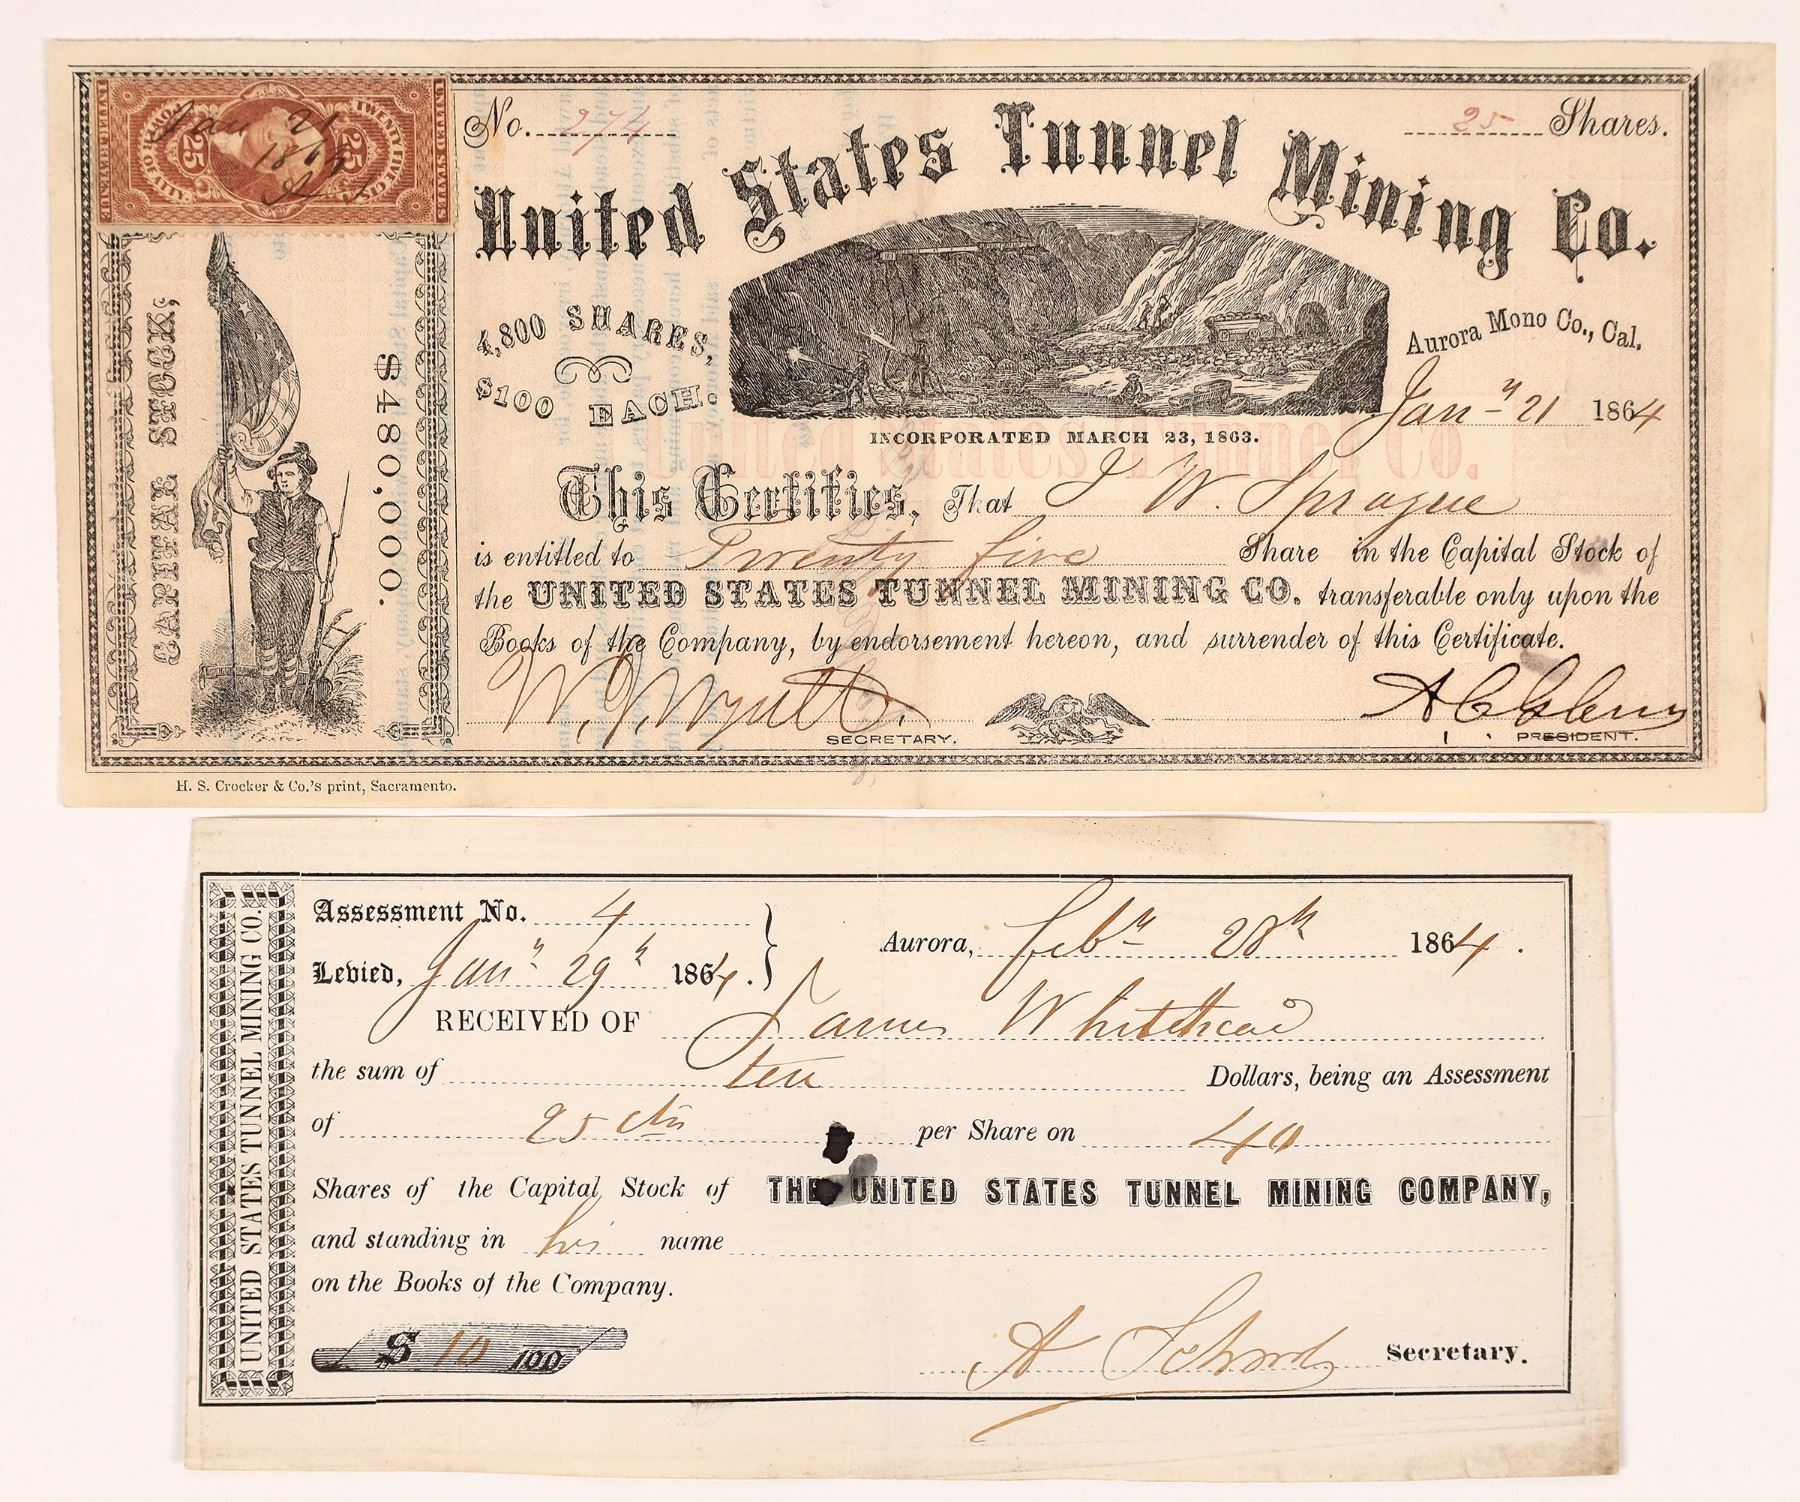 UNITED STATES
INTER. REVENUE
TWENTY FIVE CTS.
25
25
POWER OF ATT'Y
Jan 21
1864
No. 274
25 Shares.
United States Tunnel Mining Co.
4,800 SHARES,
$100 EACH.
Aurora Mono Co., Cal.
Jany 21 1864
INCORPORATED MARCH 23, 1863.
United States Tunnel Co.
CAPITAL STOCK,
$480,000.
This Certifies, That J W. Sprague
is entitled to Twenty five Share in the Capital Stock of
the UNITED STATES TUNNEL MINING CO. transferable only upon the
Books of the Company, by endorsement hereon, and surrender of this Certificate.
SECRETARY.
PRESIDENT.
H. S. Crocker & Co.'s print, Sacramento.
UNITED STATES TUNNEL MINING CO.
Assessment No. 4
Levied, Jany 29th 1864.
Aurora, Feby 28th 1864.
RECEIVED OF James Whitehead
the sum of ten Dollars, being an Assessment
of 25 cts per Share on 40
Shares of the Capital Stock of THE UNITED STATES TUNNEL MINING COMPANY,
and standing in his name
on the Books of the Company.
$ 10 100
Secretary.